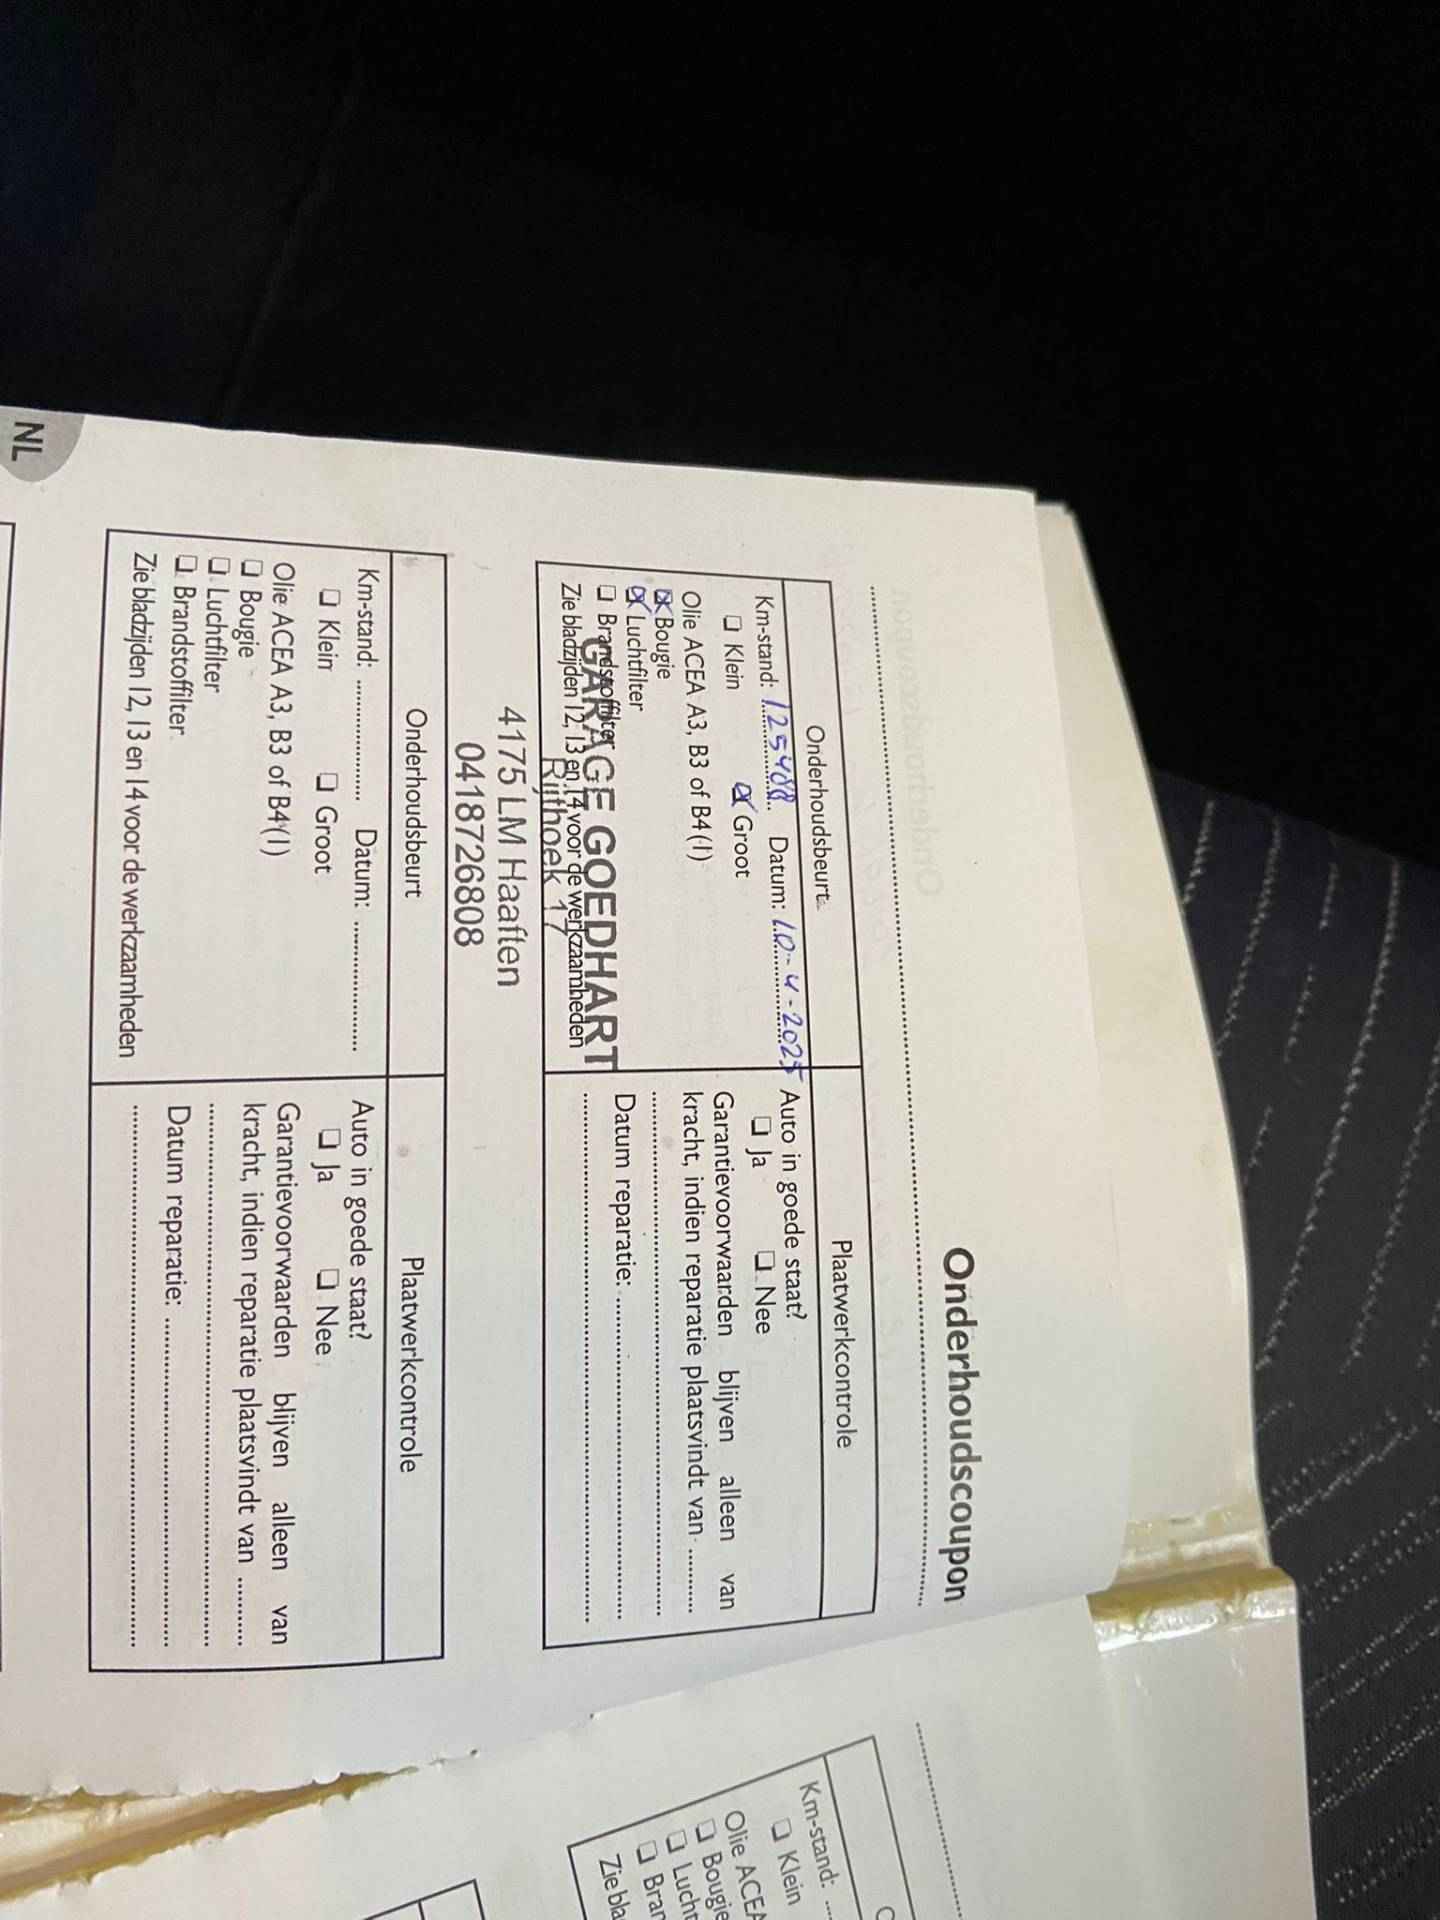 Onderhoudscoupon
Onderhoudsbeurt
Plaatwerkcontrole
Km-stand: 125488 Datum: 10-4-2025
☐ Klein ☒ Groot
Olie ACEA A3, B3 of B4 (1)
☒ Bougie
☒ Luchtfilter
☐ Brandstoffilter
Zie bladzijden 12, 13 en 14 voor de werkzaamheden
GARAGE GOEDHART
Rijthoek 17
4175 LM Haaften
0418726808
Auto in goede staat?
☐ Ja ☐ Nee
Garantievoorwaarden blijven alleen van
kracht, indien reparatie plaatsvindt van
Datum reparatie:
Onderhoudsbeurt
Plaatwerkcontrole
Km-stand: Datum:
☐ Klein ☐ Groot
Olie ACEA A3, B3 of B4 (1)
☐ Bougie
☐ Luchtfilter
☐ Brandstoffilter
Zie bladzijden 12, 13 en 14 voor de werkzaamheden
Auto in goede staat?
☐ Ja ☐ Nee
Garantievoorwaarden blijven alleen van
kracht, indien reparatie plaatsvindt van
Datum reparatie:
NL
Km-stand:
☐ Klein
Olie ACEA
☐ Bougie
☐ Lucht
☐ Bran
Zie bla